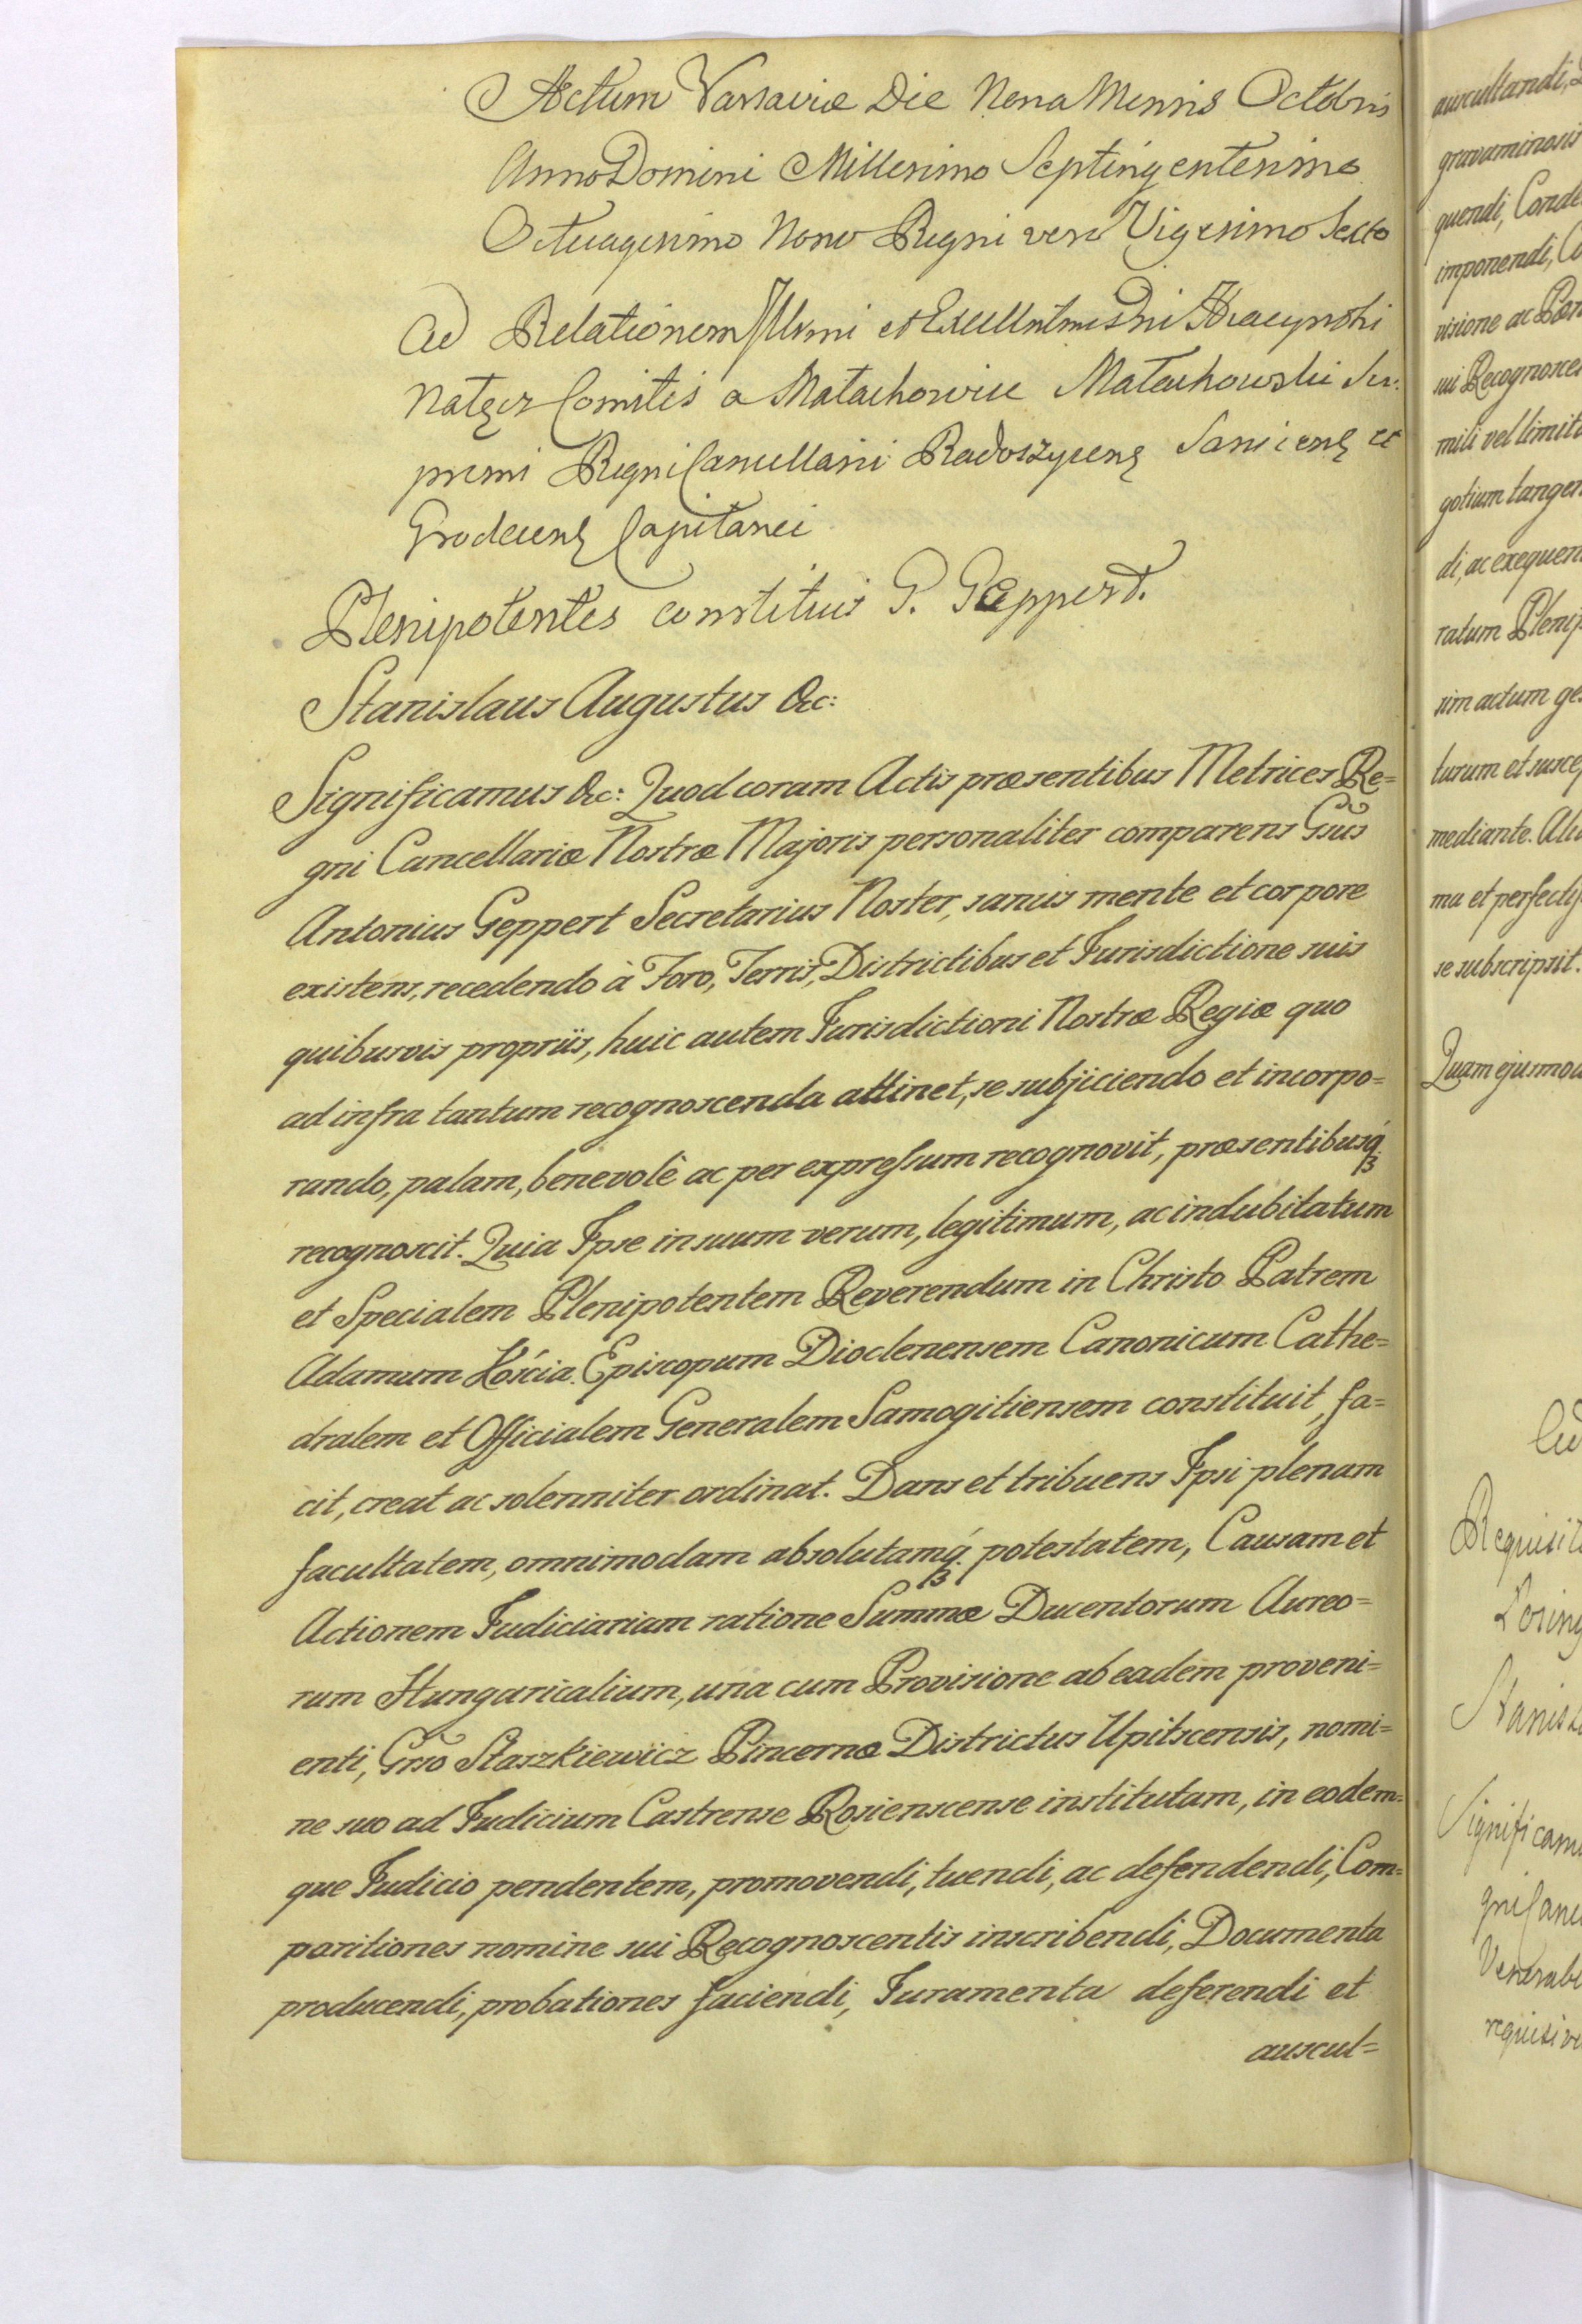 Actum Varsaviæ Die Nona Mensis Octobris
Anno Domini Millesimo Septingentesimo
Octuagesimo Nono Regni vero Vigesimo Sexto
Ad Relationem Illmi et Excellntmi Dni Hiacynthi
Natęcz Comitis a Małachowice Małachowski Su:
premi Regni Cancellarii Radoszycenę Sanicenę et
Grodecenę Capitanei
Plenipotentes constituit G. Geppert.
Stanislaus Augustus &c:
Significamus &c: Quod coram Actis præsentibus Metrices Re=
gni Cancellariæ Nostræ Majoris personaliter comparens Gsus
Antonius Geppert Secretarius Noster, sanus mente et corpore
existens, recedendo à Foro, Terris, Districtibus et Jurisdictione suis
quibusvis propriis, huic autem Jurisdictioni Nostræ Regiæ quo
ad infra tantum recognoscenda attinet, se subjiciendo et incorpo=
rando, palam, benevolè ac per expressum recognovit, præsentibusq́ʒ
recognoscit. Quia Ipse in suum verum, legitimum, ac indubitatum
et Specialem Plenipotentem Reverendum in Christo Patrem
Adamum Kościa. Episcopum Dioclenensem Canonicum Cathe=
dralem et Officialem Generalem Samogitiensem constituit, fa=
cit, creat ac solenniter ordinat. Dans et tribuens Ipsi plenam
facultatem, omnimodam absolutamq́ʒ potestatem, Causam et
Actionem Judiciariam ratione Summæ Ducentorum Aureo=
rum Hungaricalium, una cum Provisione ab eadem proveni=
enti, Grso Staszkiewicz Pincernæ Districtus Upitscensis, nomi=
ne suo ad Judicium Castrense Rosienscense institutam, in eodem=
que Judicio pendentem, promovendi, tuendi, ac defendendi, Com=
paritiones nomine sui Recognoscentis inscribendi, Documenta
producendi, probationes faciendi, Juramenta deferendi et
auscul=
auscultandi,
gravaminosis
quendi, Conde
imponendi,
visione ac
sui Recognoscen
mili vel limit
gotium tangen
di, ac exequen
ratum Plenip
sim actum ges
turum et suscep
mediante. Ali
ma et perfecty
se subscripsit.
Quam ejusmod
Requisit
Stanisl
Significam
gni Canc
Venerabi
requisive